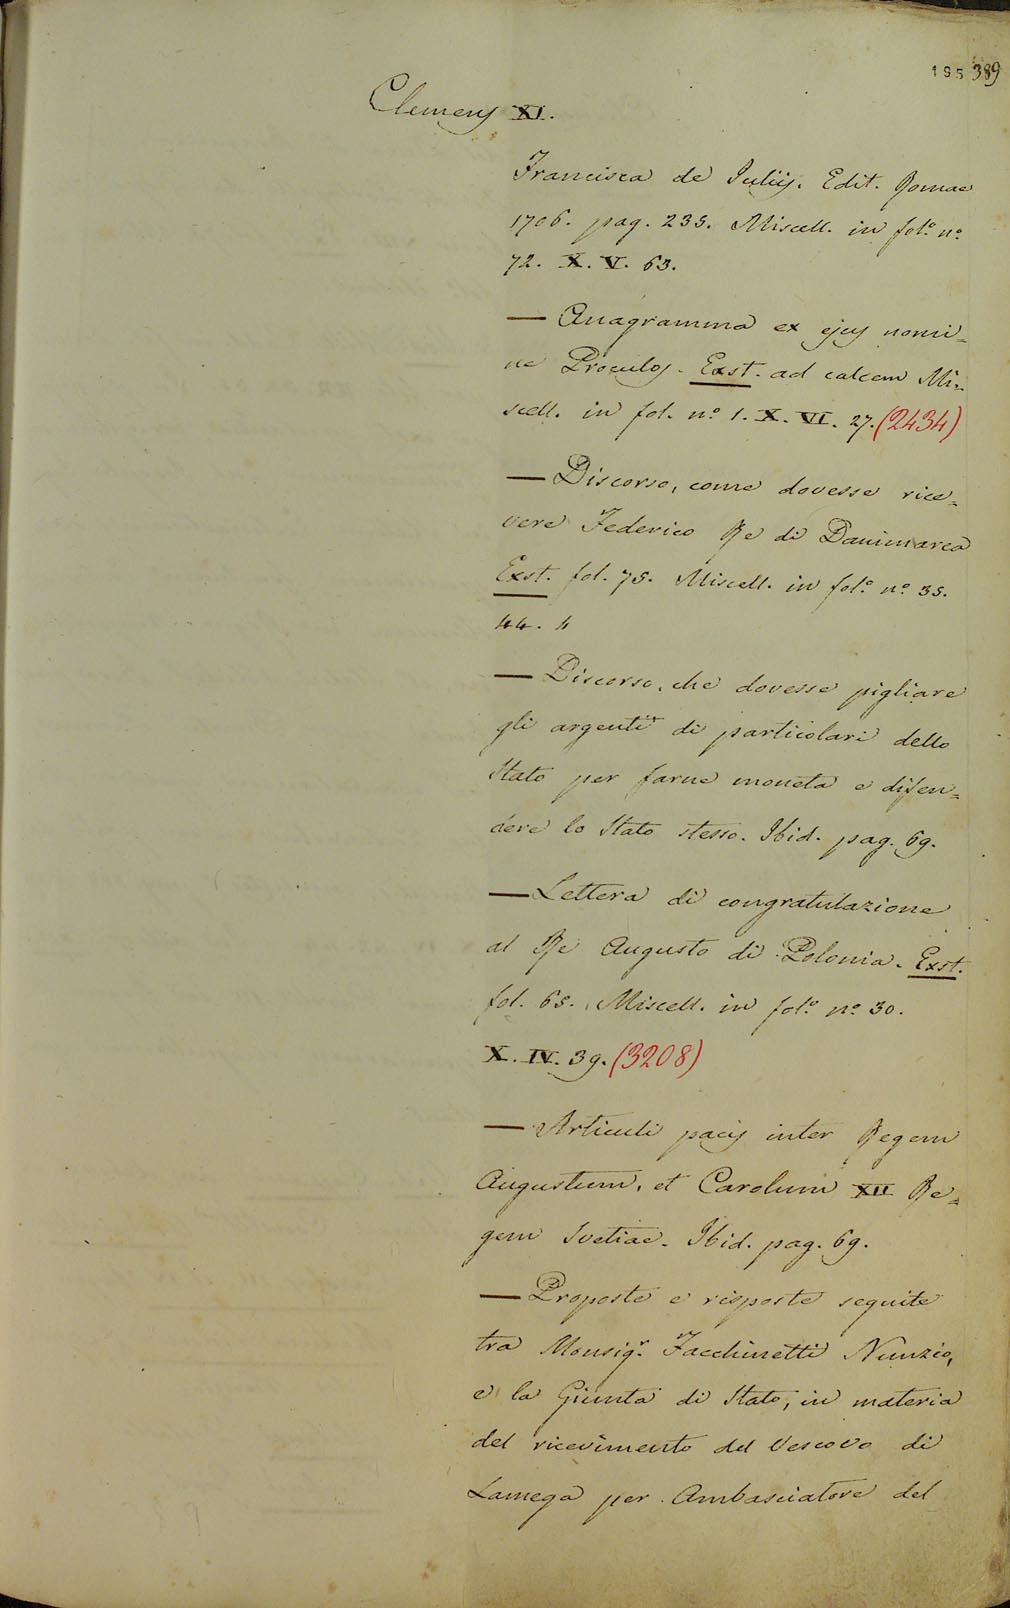 195 389
Clemens XI.
Francisca de Juliis. Edit. Romae
1706. pag. 235. Miscell. in fol.º nº
72. X. V. 63.
— Anagramma ex ejus nomi=
ne Proculos. Exst. ad calcem Mi=
scell. in fol. nº 1. X. VI. 27. (2434)
— Discorso, come dovesse rice=
vere Federico Re di Danimarca
Exst. fol. 75. Miscell. in fol.º nº 35.
44. 4
— Discorso, che dovesse pigliare
gli argenti di particolari dello
Stato per farne moneta e difen=
dere lo Stato stesso. Ibid. pag. 69.
— Lettera di congratulazione
al Re Augusto di Polonia. Exst.
fol. 65. Miscell. in fol.º nº 30.
X. IV. 39. (3208)
— Articuli pacis inter Regem
Augustum, et Carolum XII Re=
gem Svetiae. Ibid. pag. 69.
— Proposte e risposte seguite
tra Monsigr. Facchinetti Nunzio,
e la Giunta di Stato, in materia
del ricevimento del Vescovo di
Lamega per Ambasciatore del